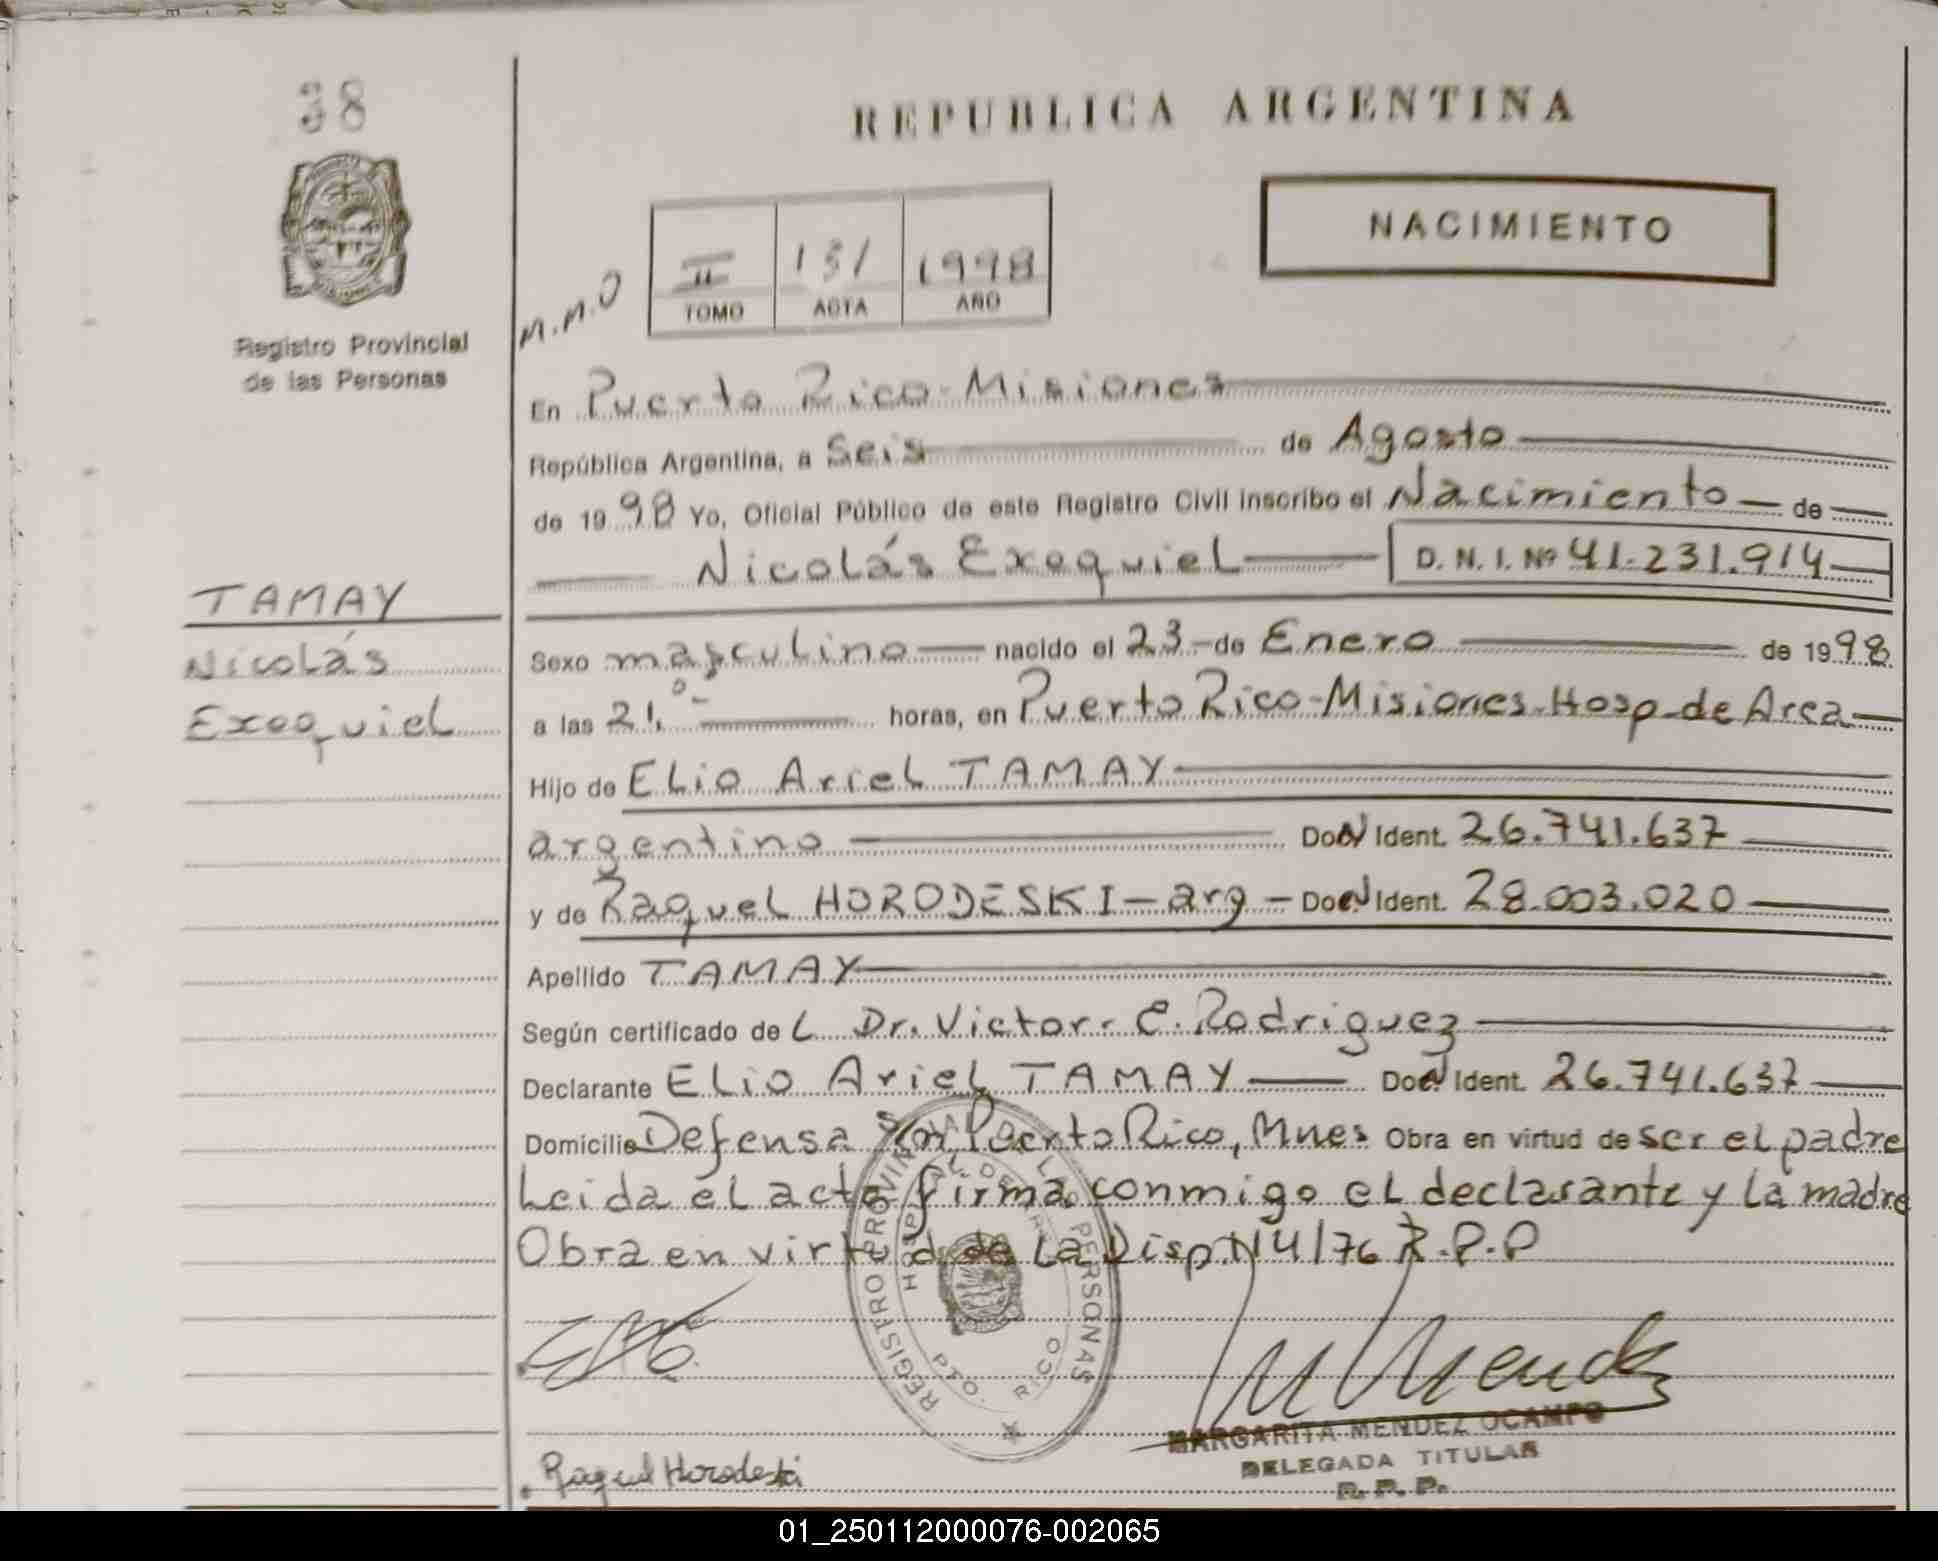 38
REPUBLICA ARGENTINA
NACIMIENTO
II 131 1998
TOMO ACTA AÑO
M.M.O
Registro Provincial
de las Personas
En Puerto Rico-Misiones
República Argentina, a Seis de Agosto
de 1998 Yo, Oficial Público de este Registro Civil inscribo el Nacimiento de
Nicolás Exequiel D. N. I. Nº 41.231.914
TAMAY
Nicolás
Exequiel
Sexo masculino nacido el 23 de Enero de 1998
a las 21,0 horas, en Puerto Rico-Misiones-Hosp-de Area
Hijo de Elio Ariel TAMAY
argentino Doc. Ident. 26.741.637
y de Raquel HORODESKI-arg - Doc. Ident. 28.003.020
Apellido TAMAY
Según certificado de L Dr. Victor. E. Rodriguez
Declarante Elio Ariel TAMAY Doc. Ident. 26.741.637
Domicilio Defensa S/n Puerto Rico, Mnes Obra en virtud de ser el padre
Leida el acta firma conmigo el declarante y la madre
Obra en virtud de la Disp. 14/76 R.P.P
REGISTRO PROVINCIAL DE LAS PERSONAS
PTO. RICO
MARGARITA MENDEZ OCAMPO
DELEGADA TITULAR
R. P. P.
Raquel Horodeski
01_250112000076-002065